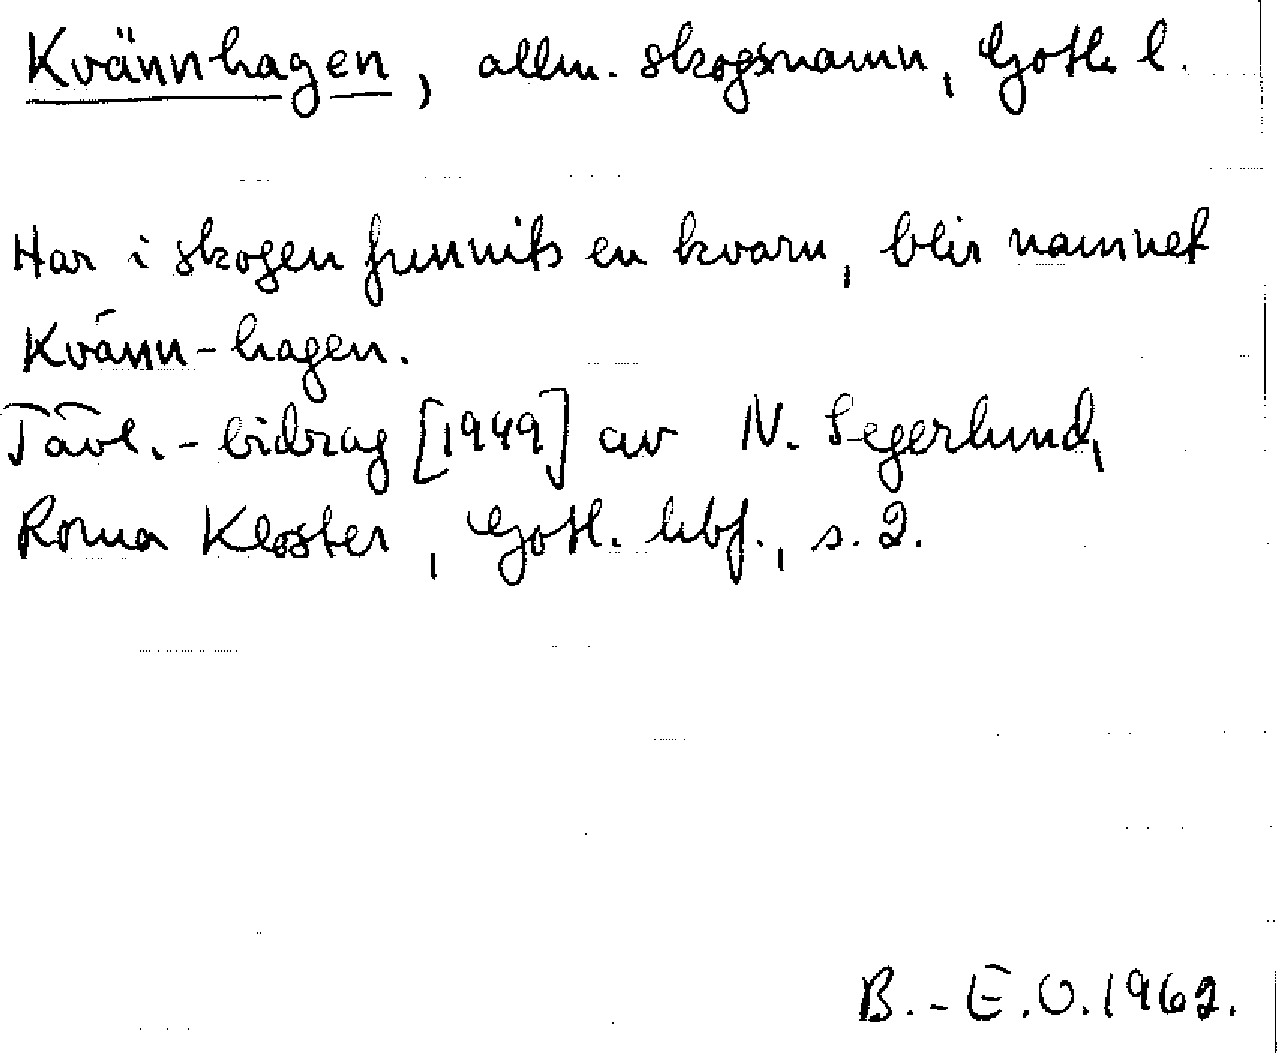 Kvännhagen, allm. skogsnamn, Gotl. l.
Har i skogen funnits en kvarn, blir namnet
Kvänn-hagen.
Tävl.-bidrag [1949] av N. Segerlund,
Roma Kloster, Gotl. hbf., s. 2.
B.-E.O. 1962.